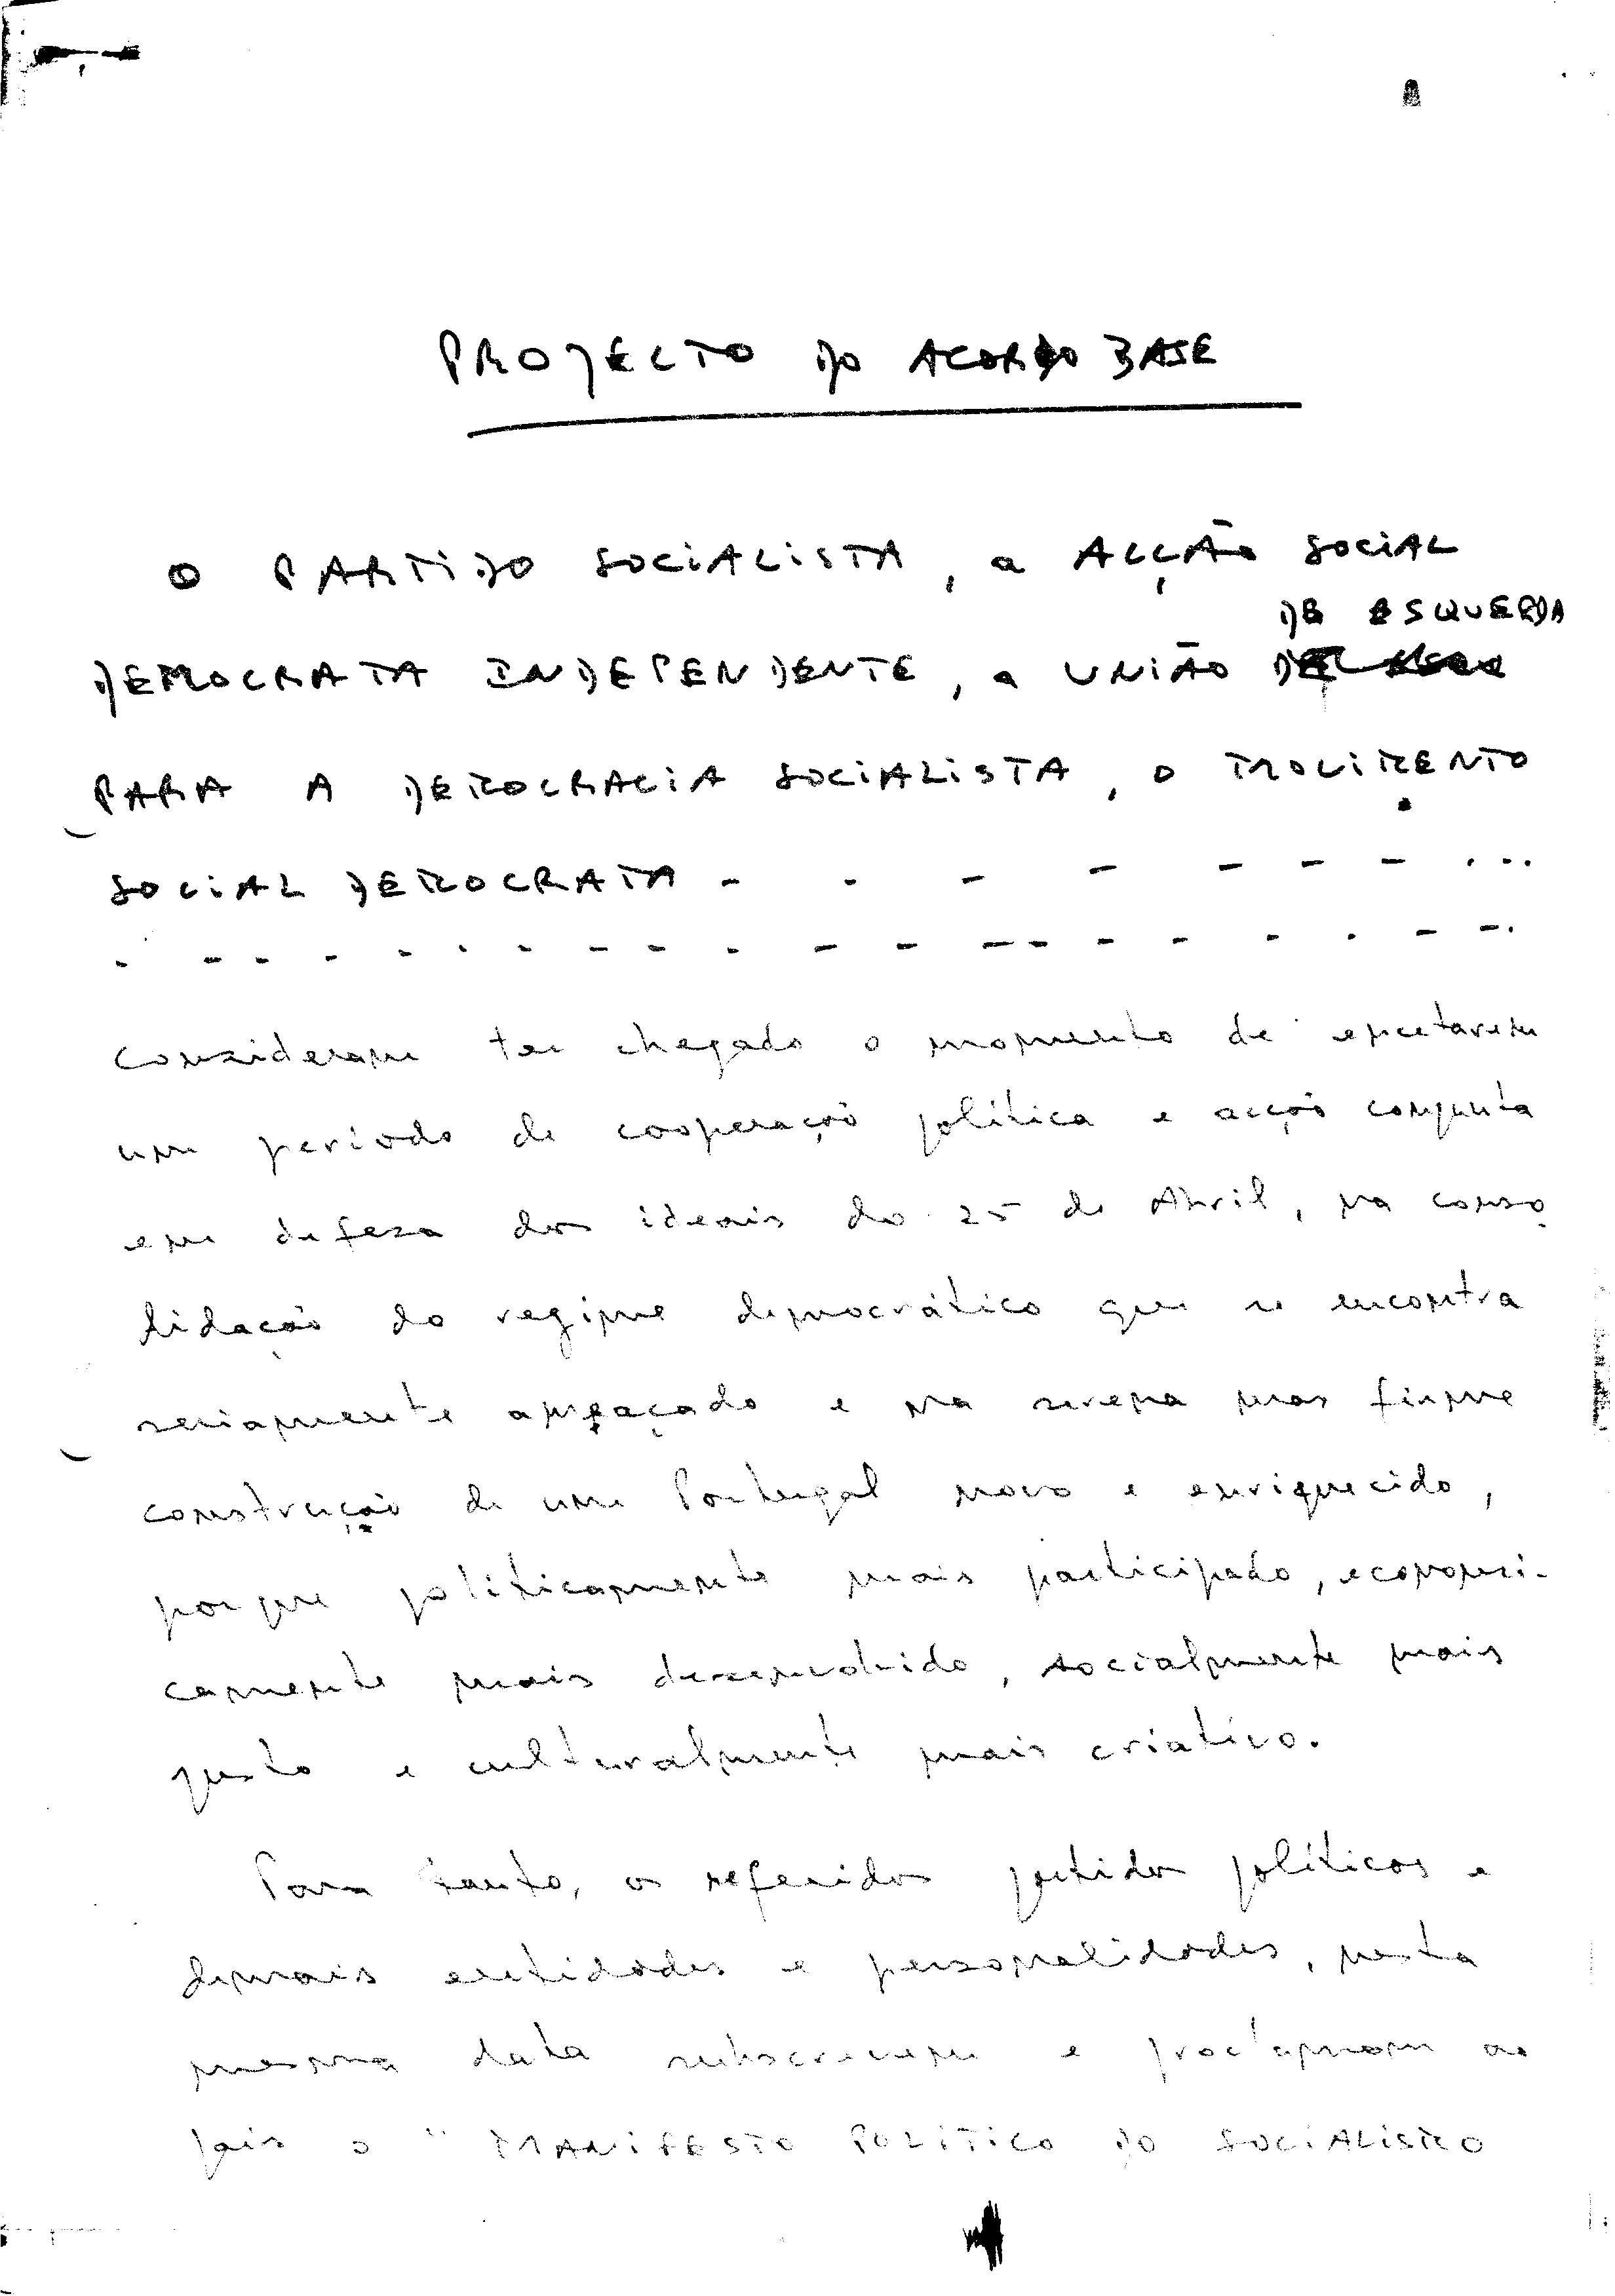 PROJECTO DO ACORDO BASE
O PARTIDO SOCIALISTA, a ACÇÃO SOCIAL
DE ESQUERDA
DEMOCRATA INDEPENDENTE, a UNIÃO
PARA A DEMOCRACIA SOCIALISTA, O MOVIMENTO
SOCIAL DEMOCRATA - - - - - - - ...
- - - - - - - - - - - - - - - - - - - - -.
consideram ter chegado o momento de encetarem
um período de cooperação política e acção conjunta
em defesa dos ideais do 25 de Abril, na conso
lidação do regime democrático que se encontra
seriamente ameaçado e na serena mas firme
construção de um Portugal novo e enriquecido,
porque politicamente mais participado, economi-
camente mais desenvolvido, socialmente mais
justo e culturalmente mais criativo.
Para tanto, os referidos partidos políticos e
demais entidades e personalidades, nesta
mesma data subscrevem e proclamam ao
país o " MANIFESTO POLITICO DO SOCIALISMO